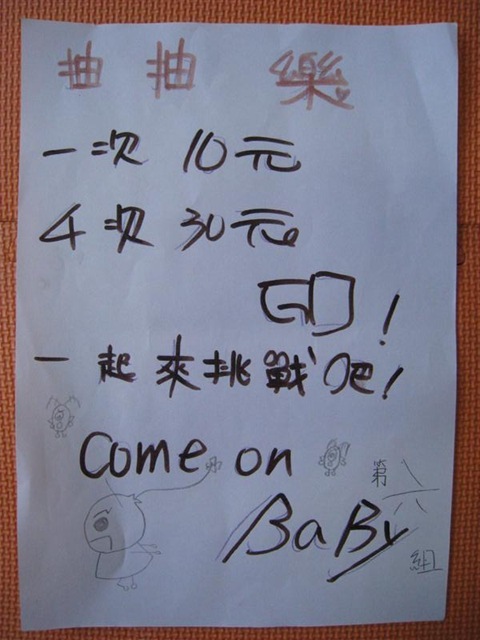 抽抽樂
一次 10元
4次 30元。
GO!
一起來挑戰吧!
Come on
BaBy
第六組